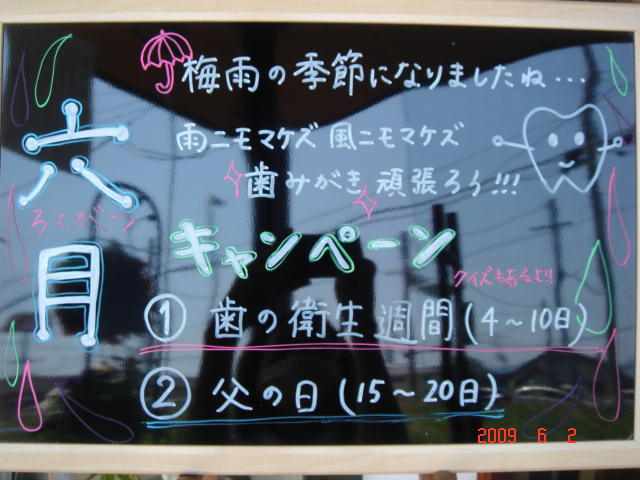 六月
ろくがーつ
梅雨の季節になりましたね...
雨ニモマケズ 風ニモマケズ
歯みがき 頑張ろう!!!
キャンペーン
クイズもあるよ!!
① 歯の衛生週間(4~10日)
② 父の日(15~20日)
2009 6 2